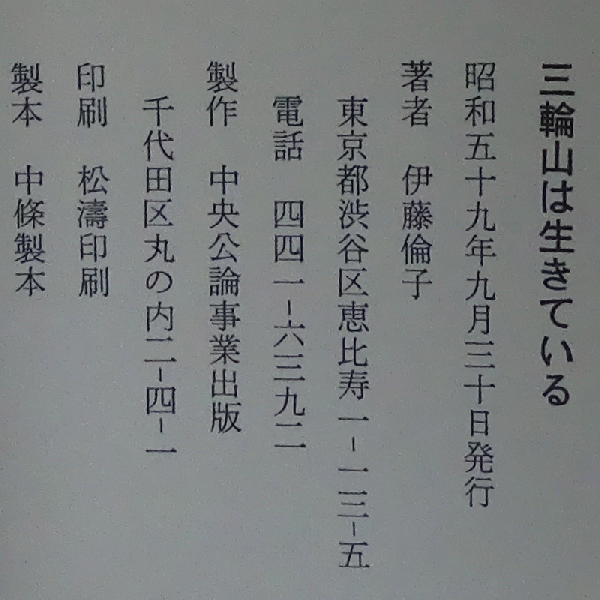 三輪山は生きている
昭和五十九年九月三十日発行
著者 伊藤倫子
東京都渋谷区恵比寿一-一三-五
電話 四四一-六三九二
製作 中央公論事業出版
千代田区丸の内二-四-一
印刷 松濤印刷
製本 中條製本